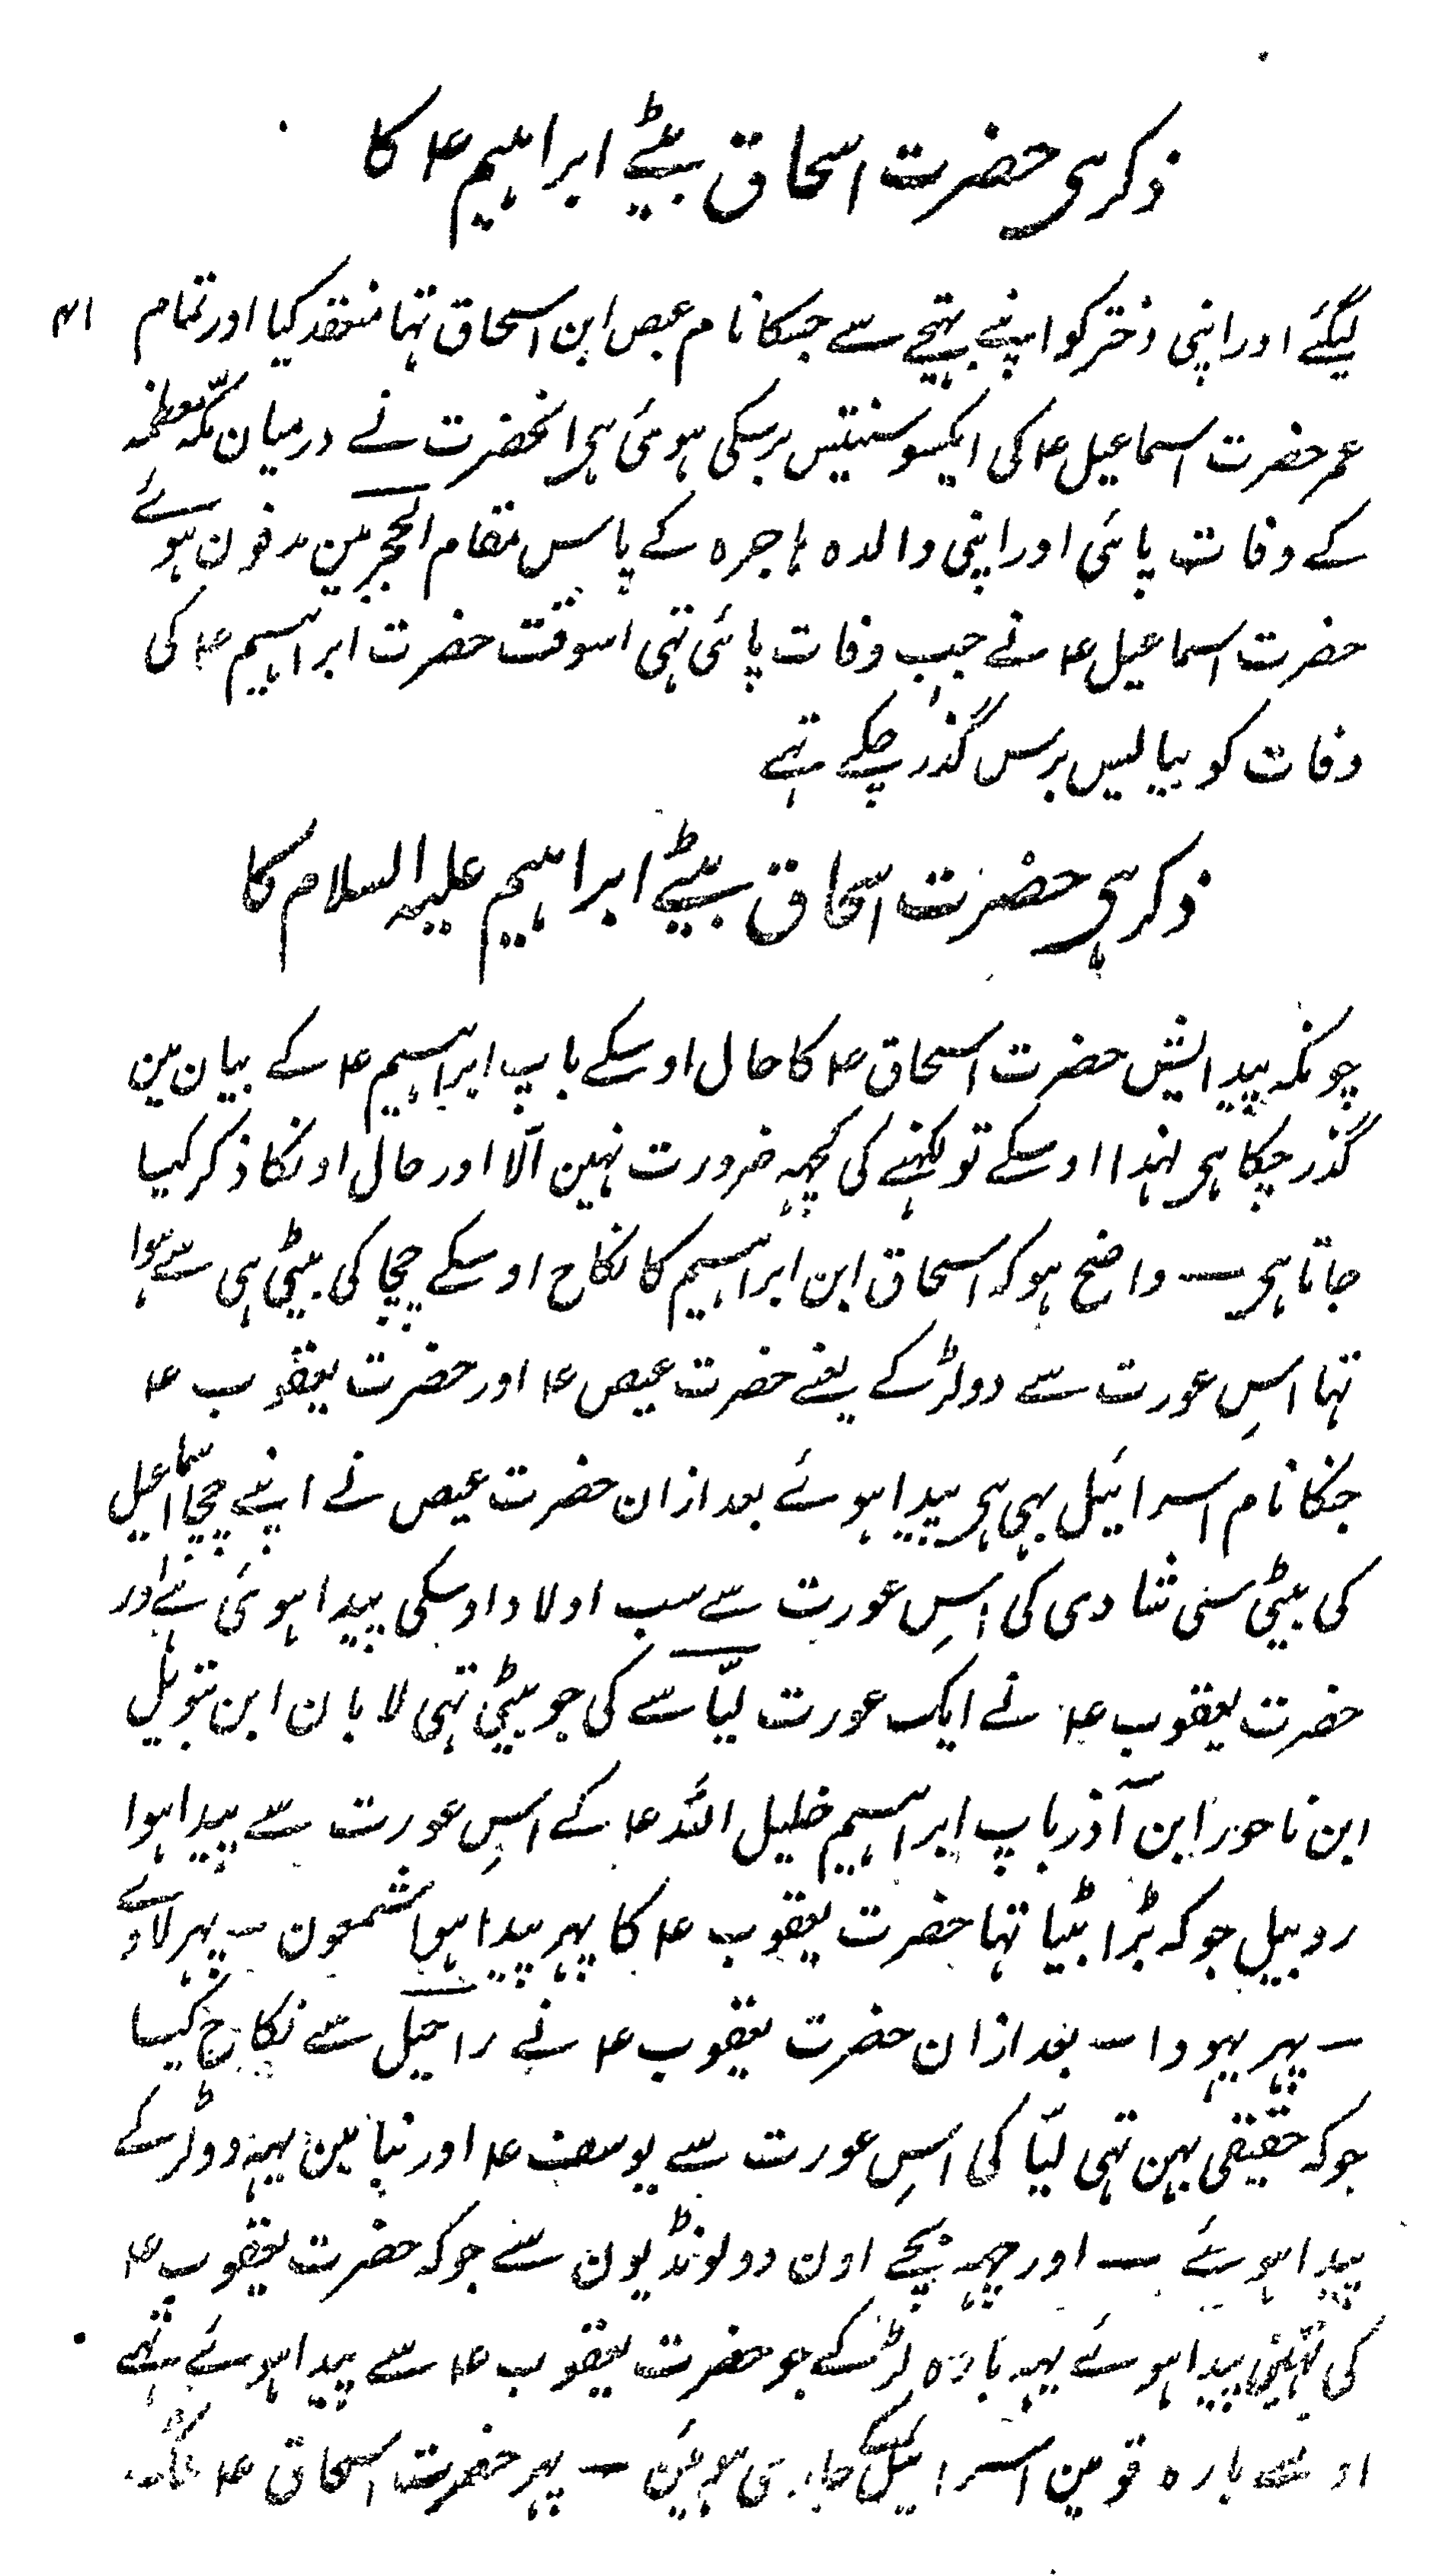 ذکر ہی حضرت اسحاق بیٹے ابراہیم ۴ کا
۴۱
لیگئے اور اپنی دختر کو اپنے بہتیجے سے جسکا نام عیص ابن اسحاق تہا منعقد کیا اور تمام
عمر حضرت اسماعیل ۴ کی ایکسو سنتیس برسکی ہوئی ہی انحضرت نے درمیان مکّہ معظمہ
کے وفات پائی اور اپنی والدہ ہاجرہ کے پاس مقام الحجر مین مدفون ہوئے
حضرت اسماعیل ۴ نے جب وفات پائی تہی اسوقت حضرت ابراہیم ۴ کی
وفات کو بیالیس برس گذر چکے تہے
ذکر ہی حضرت اسحاق بیٹے ابراہیم علیہ السلام کا
چونکہ پیدایش حضرت اسحاق ۴ کا حال اوسکے باپ ابراہیم ۴ کے بیان مین
گذر چکا ہی لہذا اوسکے تو لکہنے کی کچہہ ضرورت نہین الّا اور حال اونکا ذکر کیا
جاتا ہی — واضح ہو کہ اسحاق ابن ابراہیم کا نکاح اوسکے چچا کی بیٹی ہی سے ہوا
تہا اسِ عورت سے دو لڑکے یعنے حضرت عیص ۴ اور حضرت یعقوب ۴
جنکا نام اسرائیل بہی ہی پیدا ہوئے بعد ازان حضرت عیص نے اپنے چچا اسماعیل
کی بیٹی سنی شادی کی اسِ عورت سے سب اولاد اوسکی پیدا ہوئی ہے اور
حضرت یعقوب ۴ نے ایک عورت لیّا سے کی جو بیٹی تہی لابان ابن بتویل
ابن ناحور ابن آذر باپ ابراہیم خلیل اللہ ۴ کے اسِ عورت سے پیدا ہوا
روبیل جو کہ بڑا بیٹا تہا حضرت یعقوب ۴ کا پہر پیدا ہوا شمعون — پہر لاوے
— پہر یہودا — بعد ازان حضرت یعقوب ۴ نے راحیل سے نکاح کیا
جو کہ حقیقی بہن تہی لیّا کی اسِ عورت سے یوسف ۴ اور بنیامین یہہ دو لڑکے
پیدا ہوئے — اور چہہ بچے اون دو لونڈیون سے جو کہ حضرت یعقوب ۴
کی تہین پیدا ہوئے یہہ بارہ لڑکے جو حضرت یعقوب ۴ سے پیدا ہوئے تہے
بارہ قومین اسرائیل کے جاری ہوئین — پہر حضرت اسحاق ۴